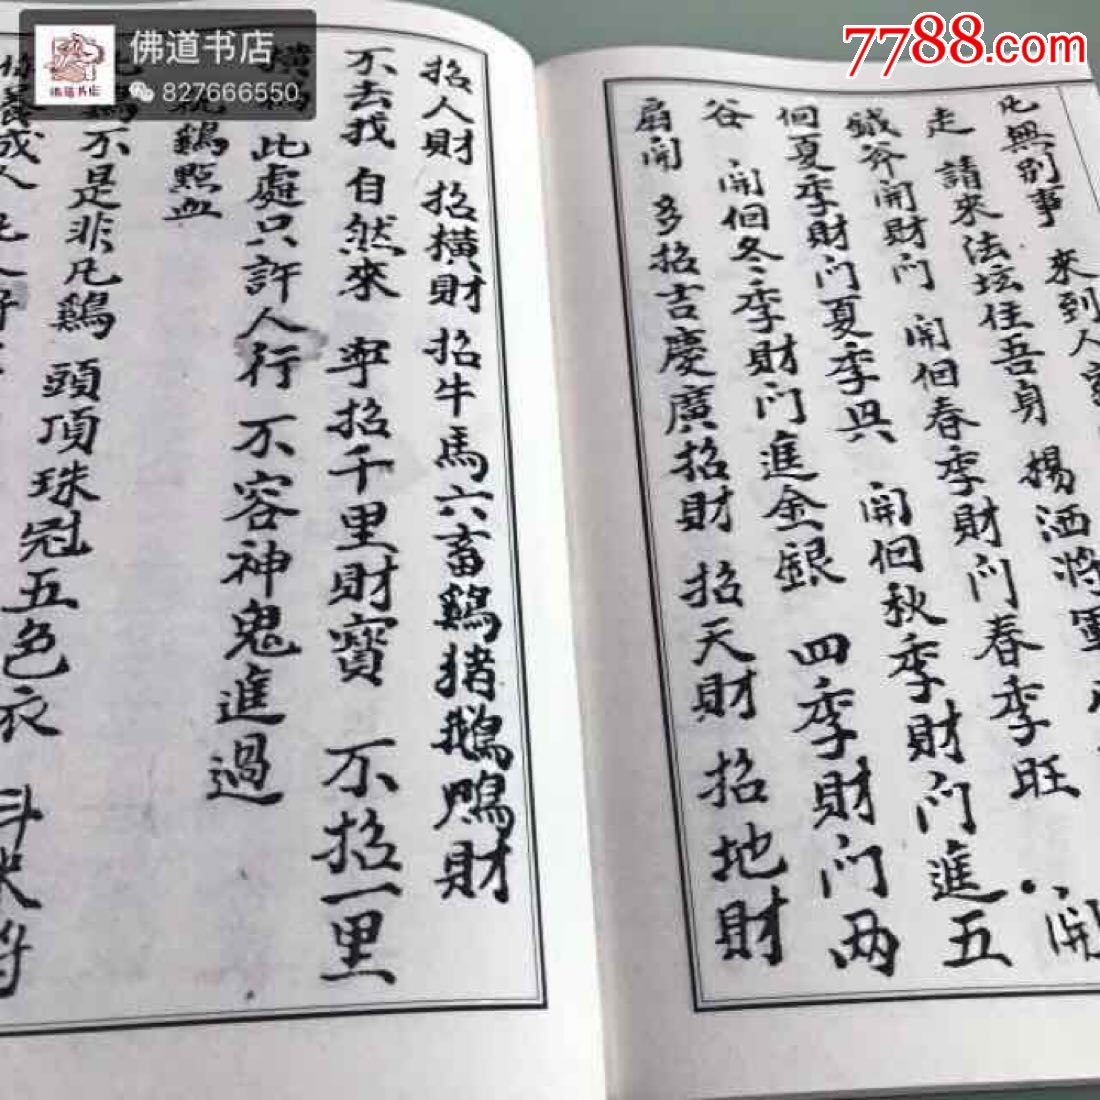 佛道书店
827666550
7788.com
佛道书店
來到人
凡無別事 揚洒將軍 開
走 請來法坛住吾身
鉞斧開財门 開個春季財门春季旺
個夏季財门夏季兴 開個秋季財门進五
谷 開個冬季財门進金銀 四季財门两
扇開 多招吉慶廣招財 招天財 招地財
招人財 招橫財 招牛馬六畜鷄猪鵝鴨財
不去找 自然來 寧招千里財寳 不招一里
橫禍 此處只許人行 不容神鬼進過
鷄點血
鷄不是非凡鷄 頭頂珠冠五色衣 斗米將
成人 凡人